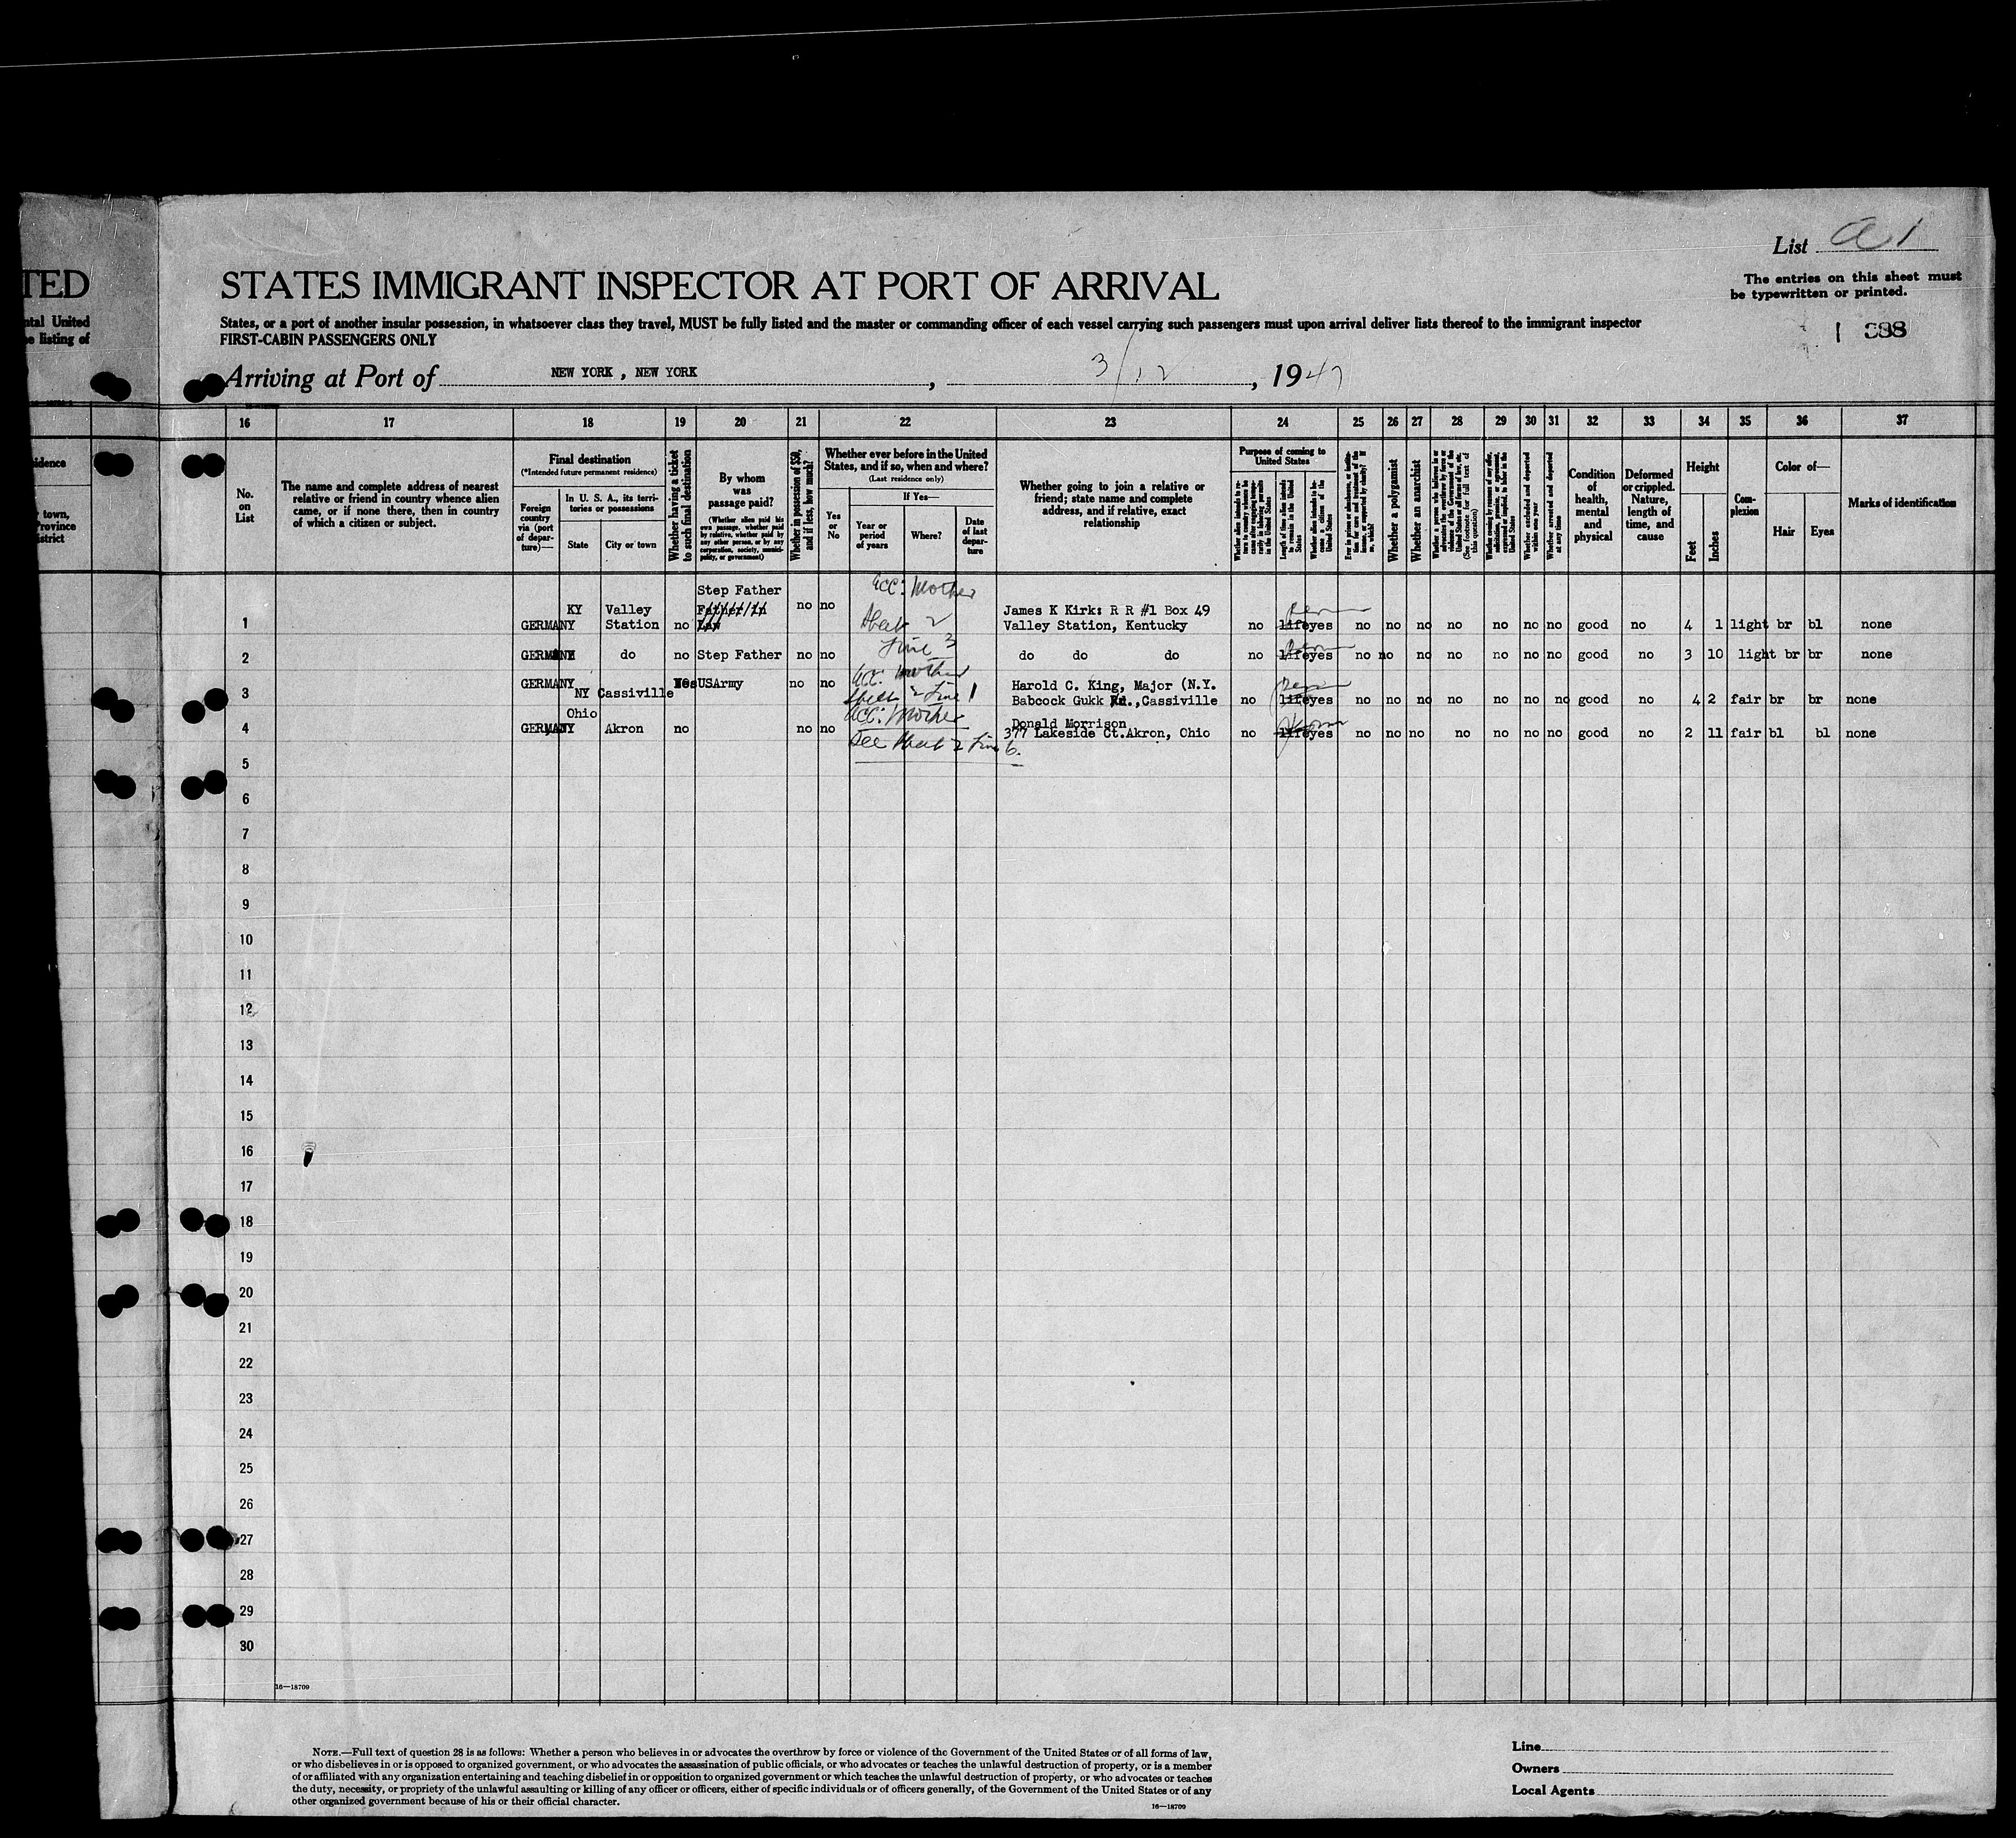 List a 1
TED
STATES IMMIGRANT INSPECTOR AT PORT OF ARRIVAL
The entries on this sheet must
be typewritten or printed.
ntal United
e listing of
States, or a port of another insular possession, in whatsoever class they travel, MUST be fully listed and the master or commanding officer of each vessel carrying such passengers must upon arrival deliver lists thereof to the immigrant inspector
FIRST-CABIN PASSENGERS ONLY
1 388
Arriving at Port of NEW YORK , NEW YORK , 3/12 , 1947
16 17 18 19 20 21 22 23 24 25 26 27 28 29 30 31 32 33 34 35 36 37
idence
town,
Province
istrict
No.
on
List
The name and complete address of nearest
relative or friend in country whence alien
came, or if none there, then in country
of which a citizen or subject.
Final destination
(*Intended future permanent residence)
Foreign
country
via (port
of depar-
ture)—
In U. S. A., its terri-
tories or possessions
State
City or town
Whether having a ticket
to such final destination
By whom
was
passage paid?
(Whether alien paid his
own passage, whether paid
by relative, whether paid by
any other person, or by any
corporation, society, munici-
pality, or government)
Whether in possession of $50,
and if less, how much?
Whether ever before in the United
States, and if so, when and where?
(Last residence only)
Yes
or
No
If Yes—
Year or
period
of years
Where?
Date
of last
depar-
ture
Whether going to join a relative or
friend; state name and complete
address, and if relative, exact
relationship
Purpose of coming to
United States
Length of time alien intends
to remain in the United
States
Whether alien intends to be-
come a citizen of the
United States
Whether a polygamist
Whether an anarchist
(See footnote for full text of
this question)
Whether excluded and deported
within one year
Whether arrested and deported
at any time
Condition
of
health,
mental
and
physical
Deformed
or crippled.
Nature,
length of
time, and
cause
Height
Feet
Inches
Com-
plexion
Color of—
Hair
Eyes
Marks of identification
Step Father
Acc: Mother
1 GERMANY KY Valley Station no Father In Law no no Sheet 2 James K Kirk: R R #1 Box 49
Valley Station, Kentucky no life yes no no no no no no no good no 4 1 light br bl none
Line 3
2 GERMANY do no Step Father no no do do do no life yes no no no no no no no good no 3 10 light br br none
3 GERMANY NY Cassiville Yes USArmy no no Acc. Mother Sheet 2 Line 1 Harold C. King, Major (N.Y.
Babcock Gukk Rd.,Cassiville no life yes no no no no no no no good no 4 2 fair br br none
4 GERMANY Ohio Akron no no no Acc: Mother Donald Morrison
377 Lakeside Ct.Akron, Ohio no life yes no no no no no no no good no 2 11 fair bl bl none
See Sheet 2 Line 6.
5
6
7
8
9
10
11
12
13
14
15
16
17
18
19
20
21
22
23
24
25
26
27
28
29
30
16—18709
NOTE.—Full text of question 28 is as follows: Whether a person who believes in or advocates the overthrow by force or violence of the Government of the United States or of all forms of law,
or who disbelieves in or is opposed to organized government, or who advocates the assassination of public officials, or who advocates or teaches the unlawful destruction of property, or is a member
of or affiliated with any organization entertaining and teaching disbelief in or opposition to organized government or which teaches the unlawful destruction of property, or who advocates or teaches
the duty, necessity, or propriety of the unlawful assaulting or killing of any officer or officers, either of specific individuals or of officers generally, of the Government of the United States or of any
other organized government because of his or their official character.
16—18709
Line
Owners
Local Agents